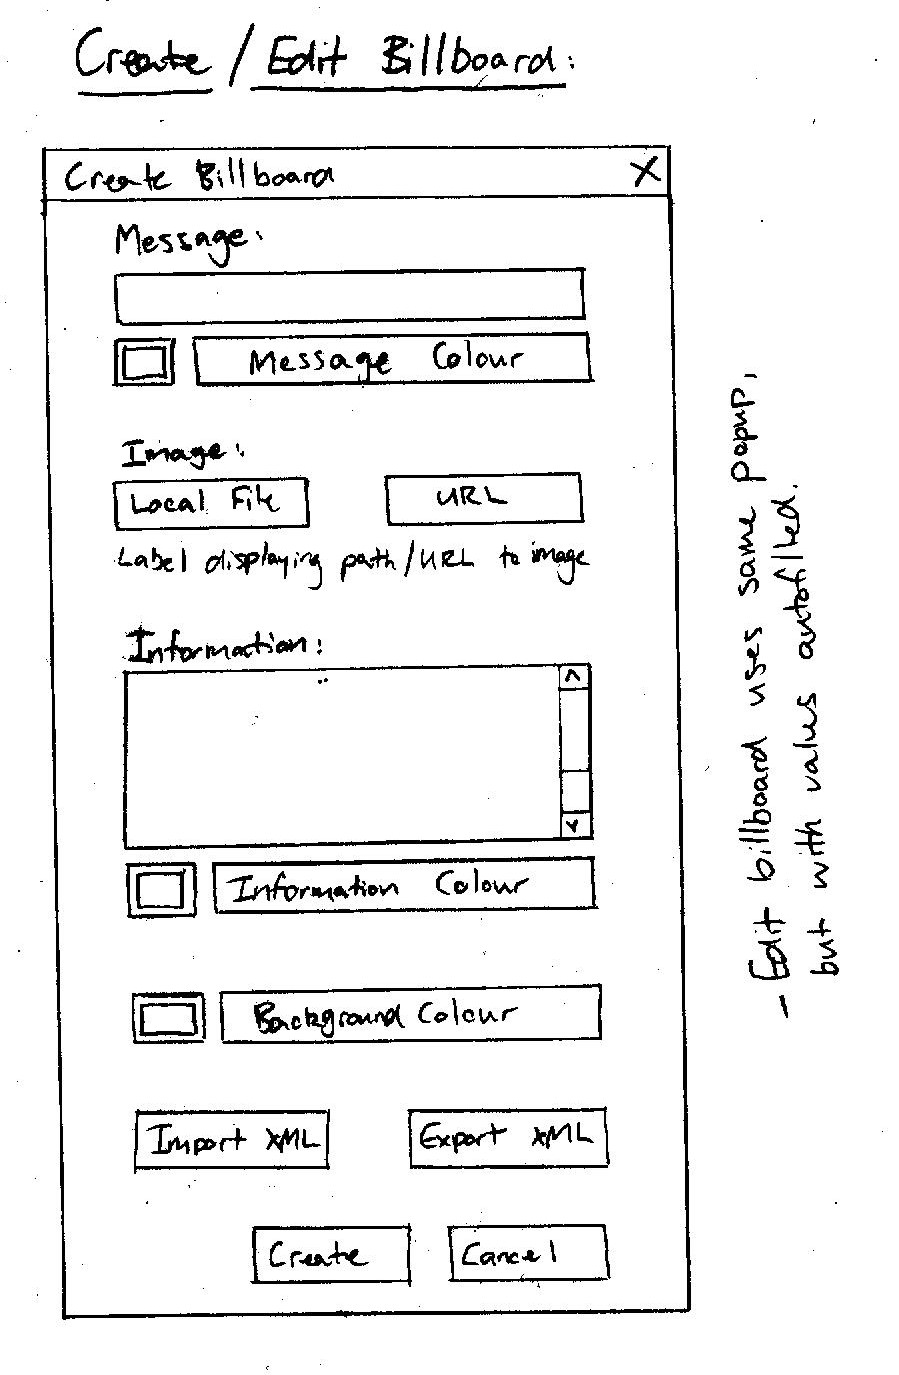 Create / Edit Billboard:
Create Billboard X
Message:
Message Colour
Image:
Local File URL
Label displaying path/URL to image
Information:
Information Colour
Background Colour
Import XML Export XML
Create Cancel
- Edit billboard uses same popup,
but with values autofilled.